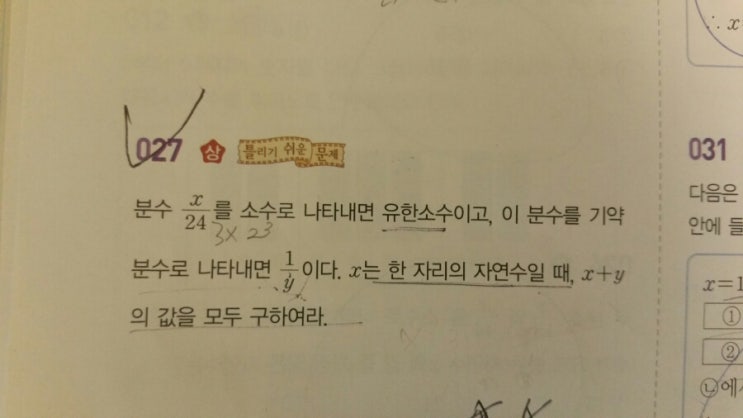 ∴ x
027 상 틀리기 쉬운 문제
분수 x/24 를 소수로 나타내면 유한소수이고, 이 분수를 기약
3×2³
분수로 나타내면 1/y 이다. x는 한 자리의 자연수일 때, x+y
의 값을 모두 구하여라.
031
다음은
안에 들
x=1
①
②
㉡에서